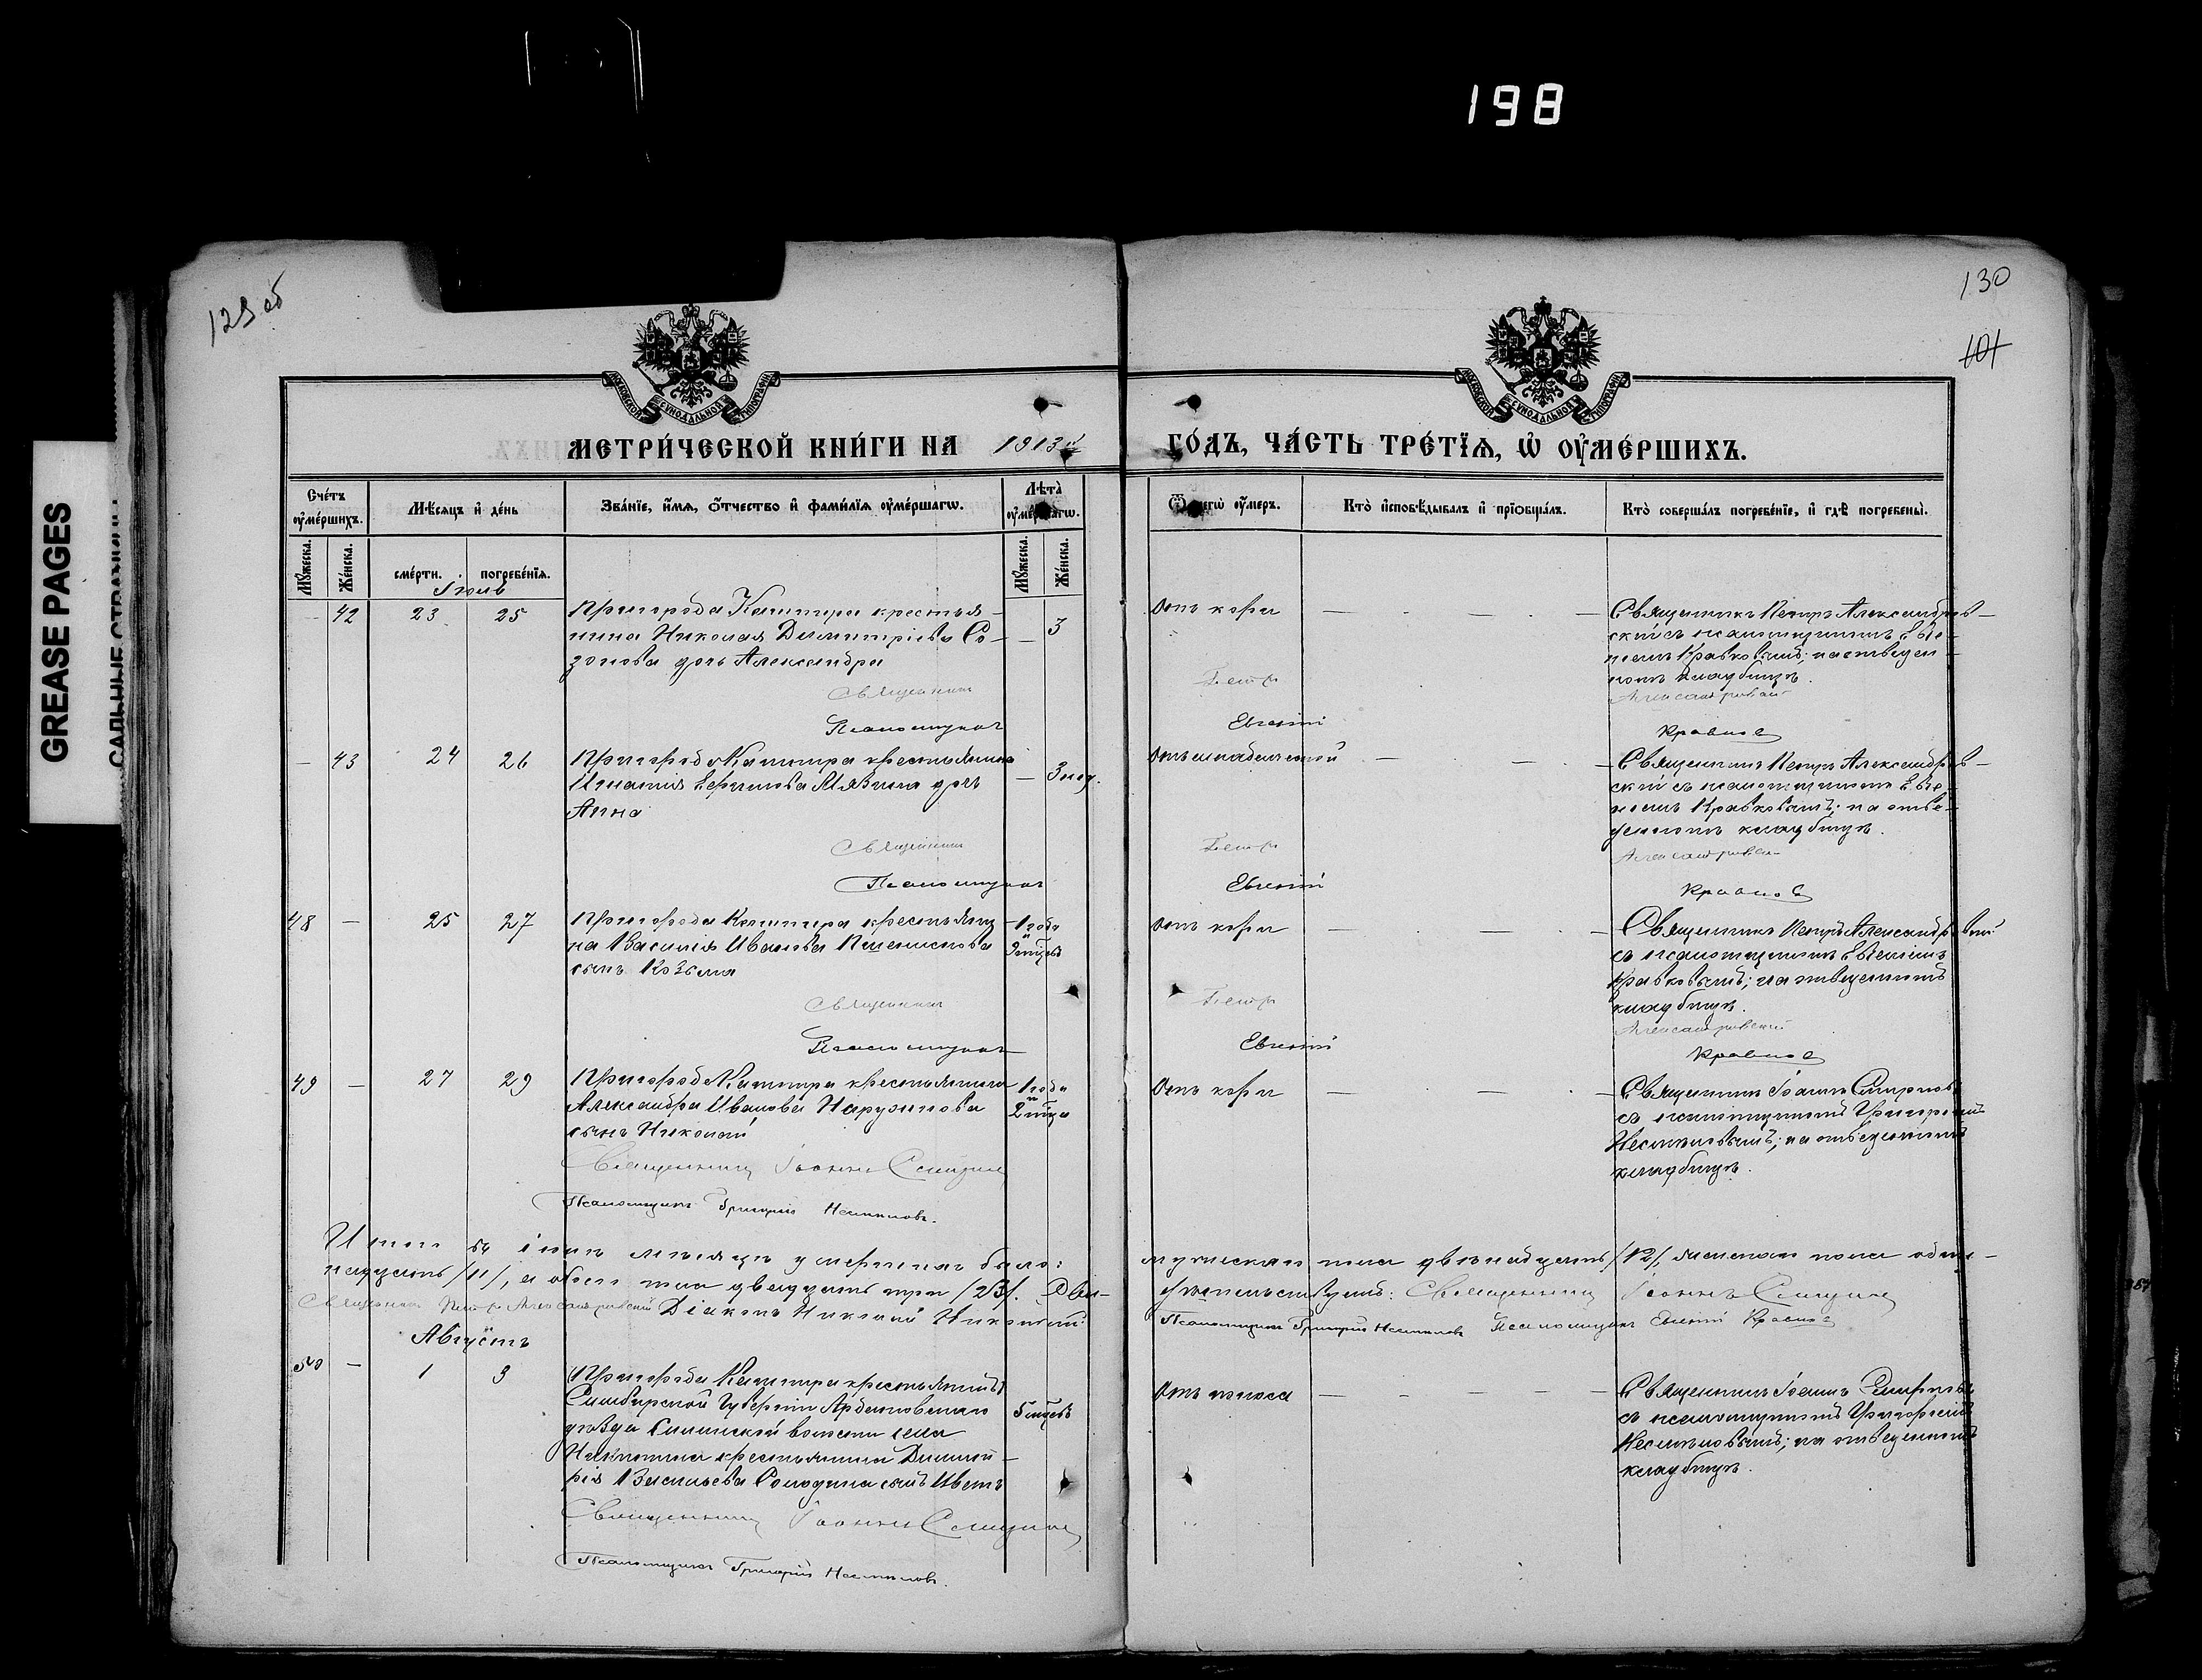 198
GREASE PAGES
129 об
130
101
МЕТРИ́ЧЕСКОЙ КНИ́ГИ НА 1913й ГО́ДЪ, ЧА́СТЬ ТРЕ́ТЇѦ, Ѡ҆ ОУ҆МЕ́РШИХЪ.
Сче́тъ оу҆ме́ршихъ.
Мѣ́сѧцъ и҆ де́нь
Зва́нїе, и҆́мѧ, ѻ҆́тчество и҆ фами́лїѧ оу҆ме́ршагѡ.
Лѣ́та оу҆ме́ршагѡ.
Ѿ чегѡ̀ оу҆́меръ.
Кто̀ и҆сповѣ́дывалъ и҆ прїѡбща́лъ.
Кто̀ соверша́лъ погребе́нїе, и҆ гдѣ̀ погребены̀.
Мꙋ́жеска.
Же́нска.
сме́рти.
погребе́нїѧ.
Мꙋ́жеска.
Же́нска.
Іюль
— 42 23 25
Пригорода Каштира крестья-
нина Николая Димитріева Со-
зонова дочь Александра
— 3
Отъ кори — — —
Священникъ Петръ Александров-
скій съ псаломщикомъ Евге-
ніемъ Кравковымъ; на отведен-
номъ кладбищѣ.
Священникъ Петръ Александровскій
Псаломщикъ Евгеній Кравков
— 43 24 26
Пригорода Каштира крестьянина
Игнатія Ефимова Мявина дочь
Анна
— 3 нед.
— — —
Священникъ Петръ Александров-
скій съ псаломщикомъ Евге-
ніемъ Кравковымъ; на отве-
денномъ кладбищѣ.
Священникъ Петръ Александровскій
Псаломщикъ Евгеній Кравков
48 — 25 27
Пригорода Каштира крестьяни-
на Василія Иванова
сынъ Козьма
1 года и мцевъ
Отъ кори — — —
Священникъ Петръ Александровскій
съ псаломщикомъ Евгеніемъ
Кравковымъ; на отведенномъ
кладбищѣ.
Священникъ Петръ Александровскій
Псаломщикъ Евгеній Кравков
49 — 27 29
Пригорода Каштира крестьянина
Александра Иванова
сынъ Николай
1 года и 2 мца
Отъ кори — — —
Священникъ Іоаннъ Смирновъ
съ псаломщикомъ Григоріемъ
на отведенномъ
кладбищѣ.
Священникъ Іоаннъ Смирнов
Псаломщикъ Григорій
Итого въ іюлѣ мѣсяцѣ умершихъ было: мужескаго пола двѣнадцать /12/, женскаго пола один-
надцать /11/, а обоего пола двадцать три /23/.
Священникъ Петръ Александровскій Діаконъ Николай Священникъ Іоаннъ Смирнов
Псаломщикъ Григорій Псаломщикъ Евгеній Кравков
Августъ
50 — 1 3
Пригорода Каштира
Симбирской губерніи Ардатовскаго
уѣзда волости села
крестьянина Димит-
рія Васильева Солодина сынъ
5 мцевъ
Отъ поноса — — — —
Священникъ Іоаннъ Смирновъ
съ псаломщикомъ Григоріемъ
на отведенномъ
кладбищѣ.
Священникъ Іоаннъ Смирнов
Псаломщикъ Григорій